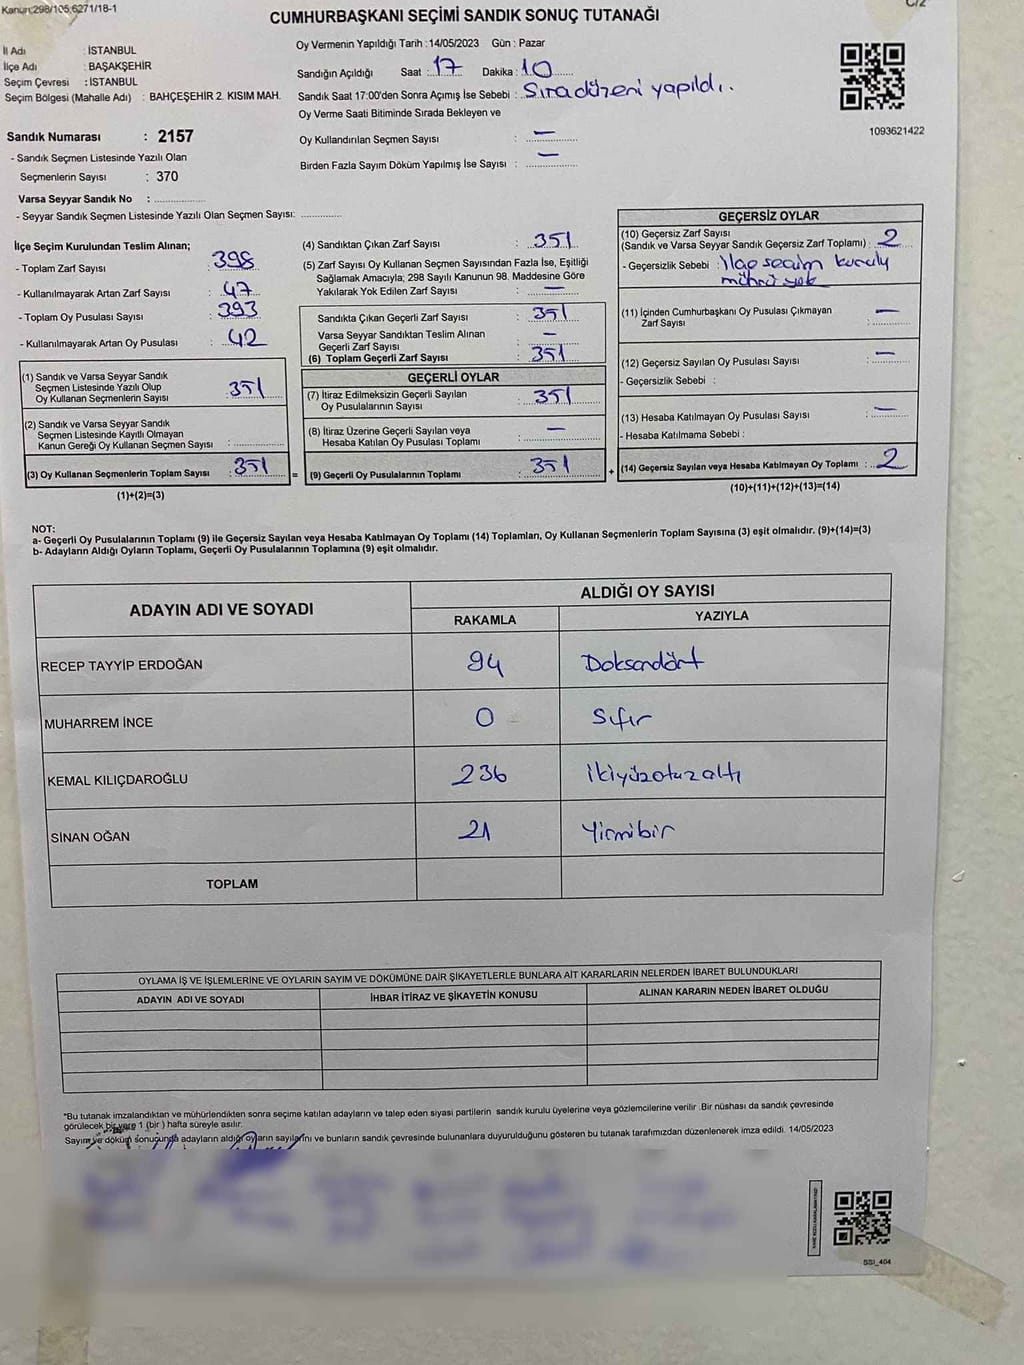 Kanun:298/105,6271/18-1
C/2
CUMHURBAŞKANI SEÇİMİ SANDIK SONUÇ TUTANAĞI
İl Adı : İSTANBUL
İlçe Adı : BAŞAKŞEHİR
Seçim Çevresi : İSTANBUL
Seçim Bölgesi (Mahalle Adı) : BAHÇEŞEHİR 2. KISIM MAH.
Oy Vermenin Yapıldığı Tarih :14/05/2023 Gün : Pazar
Sandığın Açıldığı Saat : 17 Dakika : 10
Sandık Saat 17:00'den Sonra Açımış İse Sebebi : Sıra düzeni yapıldı.
Oy Verme Saati Bitiminde Sırada Bekleyen ve
Oy Kullandırılan Seçmen Sayısı : —
Birden Fazla Sayım Döküm Yapılmış İse Sayısı : —
1093621422
Sandık Numarası : 2157
- Sandık Seçmen Listesinde Yazılı Olan
Seçmenlerin Sayısı : 370
Varsa Seyyar Sandık No :
- Seyyar Sandık Seçmen Listesinde Yazılı Olan Seçmen Sayısı:
İlçe Seçim Kurulundan Teslim Alınan;
- Toplam Zarf Sayısı : 398
- Kullanılmayarak Artan Zarf Sayısı : 47
- Toplam Oy Pusulası Sayısı : 393
- Kullanılmayarak Artan Oy Pusulası : 42
(1) Sandık ve Varsa Seyyar Sandık
Seçmen Listesinde Yazılı Olup
Oy Kullanan Seçmenlerin Sayısı : 351
(2) Sandık ve Varsa Seyyar Sandık
Seçmen Listesinde Kayıtlı Olmayan
Kanun Gereği Oy Kullanan Seçmen Sayısı :
(3) Oy Kullanan Seçmenlerin Toplam Sayısı : 351
(1)+(2)=(3)
(4) Sandıktan Çıkan Zarf Sayısı : 351
(5) Zarf Sayısı Oy Kullanan Seçmen Sayısından Fazla İse, Eşitliği
Sağlamak Amacıyla; 298 Sayılı Kanunun 98. Maddesine Göre
Yakılarak Yok Edilen Zarf Sayısı : —
Sandıkta Çıkan Geçerli Zarf Sayısı : 351
Varsa Seyyar Sandıktan Teslim Alınan
Geçerli Zarf Sayısı : —
(6) Toplam Geçerli Zarf Sayısı : 351
GEÇERLİ OYLAR
(7) İtiraz Edilmeksizin Geçerli Sayılan
Oy Pusulalarının Sayısı : 351
(8) İtiraz Üzerine Geçerli Sayılan veya
Hesaba Katılan Oy Pusulası Toplamı : —
= (9) Geçerli Oy Pusulalarının Toplamı : 351 +
GEÇERSİZ OYLAR
(10) Geçersiz Zarf Sayısı
(Sandık ve Varsa Seyyar Sandık Geçersiz Zarf Toplamı) : 2
- Geçersizlik Sebebi : İlçe seçim kurulu
mührü yok
(11) İçinden Cumhurbaşkanı Oy Pusulası Çıkmayan
Zarf Sayısı : —
(12) Geçersiz Sayılan Oy Pusulası Sayısı : —
- Geçersizlik Sebebi :
(13) Hesaba Katılmayan Oy Pusulası Sayısı : —
- Hesaba Katılmama Sebebi :
(14) Geçersiz Sayılan veya Hesaba Katılmayan Oy Toplamı : 2
(10)+(11)+(12)+(13)=(14)
NOT:
a- Geçerli Oy Pusulalarının Toplamı (9) ile Geçersiz Sayılan veya Hesaba Katılmayan Oy Toplamı (14) Toplamları, Oy Kullanan Seçmenlerin Toplam Sayısına (3) eşit olmalıdır. (9)+(14)=(3)
b- Adayların Aldığı Oyların Toplamı, Geçerli Oy Pusulalarının Toplamına (9) eşit olmalıdır.
ADAYIN ADI VE SOYADI
ALDIĞI OY SAYISI
RAKAMLA YAZIYLA
RECEP TAYYİP ERDOĞAN 94 Doksandört
MUHARREM İNCE 0 Sıfır
KEMAL KILIÇDAROĞLU 236 ikiyüzotuzaltı
SİNAN OĞAN 21 Yirmibir
TOPLAM
OYLAMA İŞ VE İŞLEMLERİNE VE OYLARIN SAYIM VE DÖKÜMÜNE DAİR ŞİKAYETLERLE BUNLARA AİT KARARLARIN NELERDEN İBARET BULUNDUKLARI
ADAYIN ADI VE SOYADI İHBAR İTİRAZ VE ŞİKAYETİN KONUSU ALINAN KARARIN NEDEN İBARET OLDUĞU
*Bu tutanak imzalandıktan ve mühürlendikten sonra seçime katılan adayların ve talep eden siyasi partilerin sandık kurulu üyelerine veya gözlemcilerine verilir .Bir nüshası da sandık çevresinde
görülecek bir yere 1 (bir ) hafta süreyle asılır.
Sayım ve döküm sonucunda adayların aldığı oyların sayılarını ve bunların sandık çevresinde bulunanlara duyurulduğunu gösteren bu tutanak tarafımızdan düzenlenerek imza edildi. 14/05/2023
SSI_404